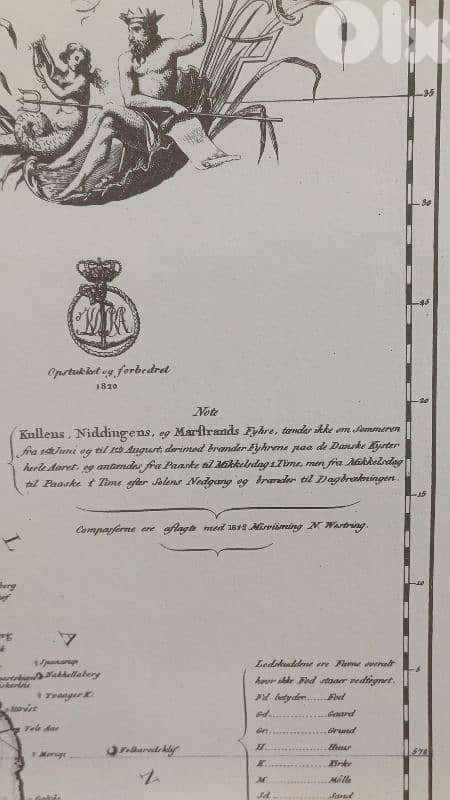 Olx
35
30
25
Opstukket og forbedret
1820
20
Note
Kullens, Niddingens, og Marstrands Fyhre, tændes ikke om Sommeren
fra 1ste Juni og til 1ste August, derimod brænder Fyhrene paa de Danske Kyster
heele Aaret, og antændes fra Paaske til Mikkelsdag 1 Time, men fra Mikkelsdag
til Paaske ½ Time efter Solens Nedgang og brænder til Dagbrækningen.
15
Compasserne ere aflagte med 18° Misviisning N. Westring.
L
10
A
Spanarup
Wakkellaberg
Tvaager K.
5
Lodskuddene ere Favne overalt
hvor ikke Fod staaer vedtegnet.
Fd. betyder Fod
Gd. Gaard
Gr. Grund
H. Huus
K. Kirke
M. Mölle
Sd. Sand
Tels Aae
Morup
57
N